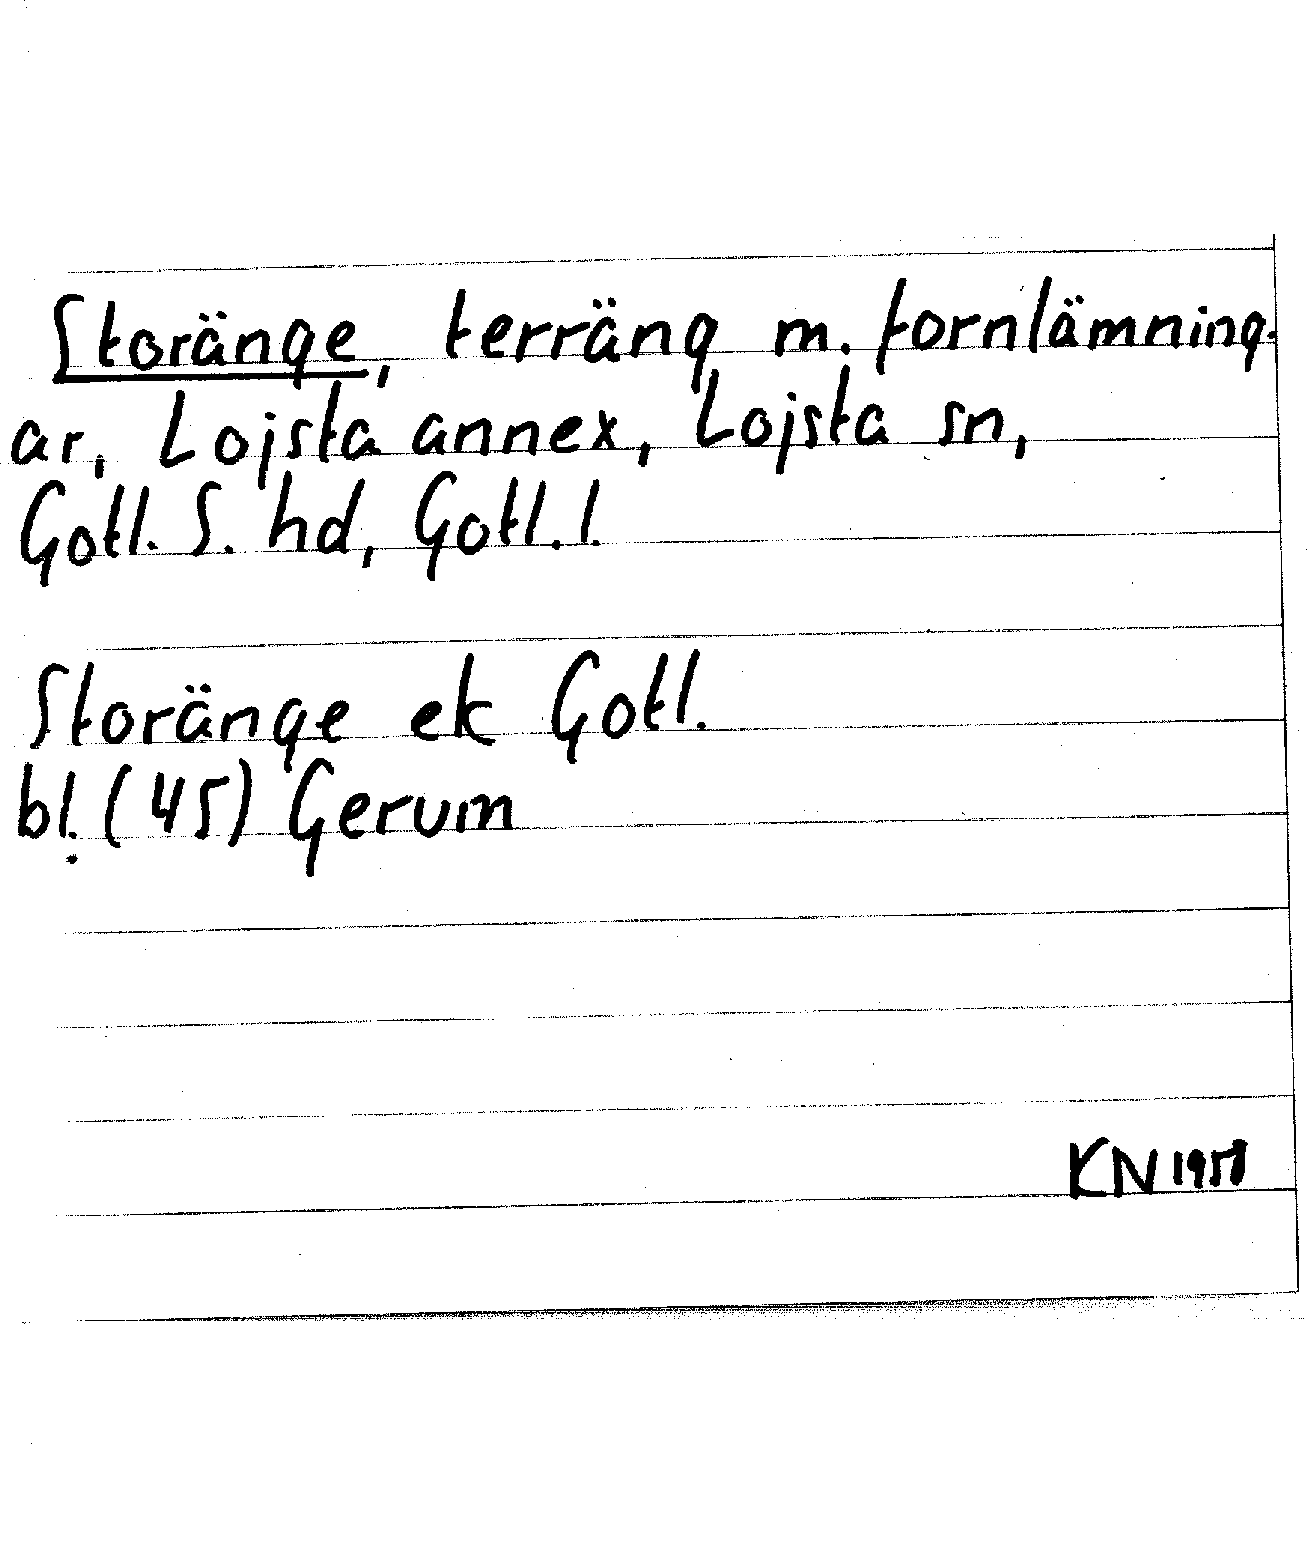 Storänge, terräng m. fornlämning-
ar, Lojsta annex, Lojsta sn,
Gotl. S. hd, Gotl. l.
Storänge ek Gotl.
bl. (45) Gerum
KN